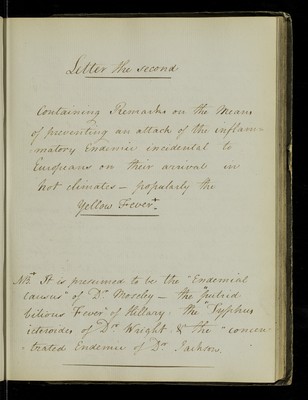 Letter the second
Containing Remarks on the Means
of preventing an attack of the inflam-
matory Endemic incidental to
Europeans on their arrival in
hot climates — popularly the
Yellow Fever+.
NB+ It is presumed to be the "Endemial
Causus" of Dr Moseley — the "putrid
bilious Fever" of Hillary; the "Typhus
icterodes" of Dr Wright, & the "concen-
trated Endemic of Dr Jackson.